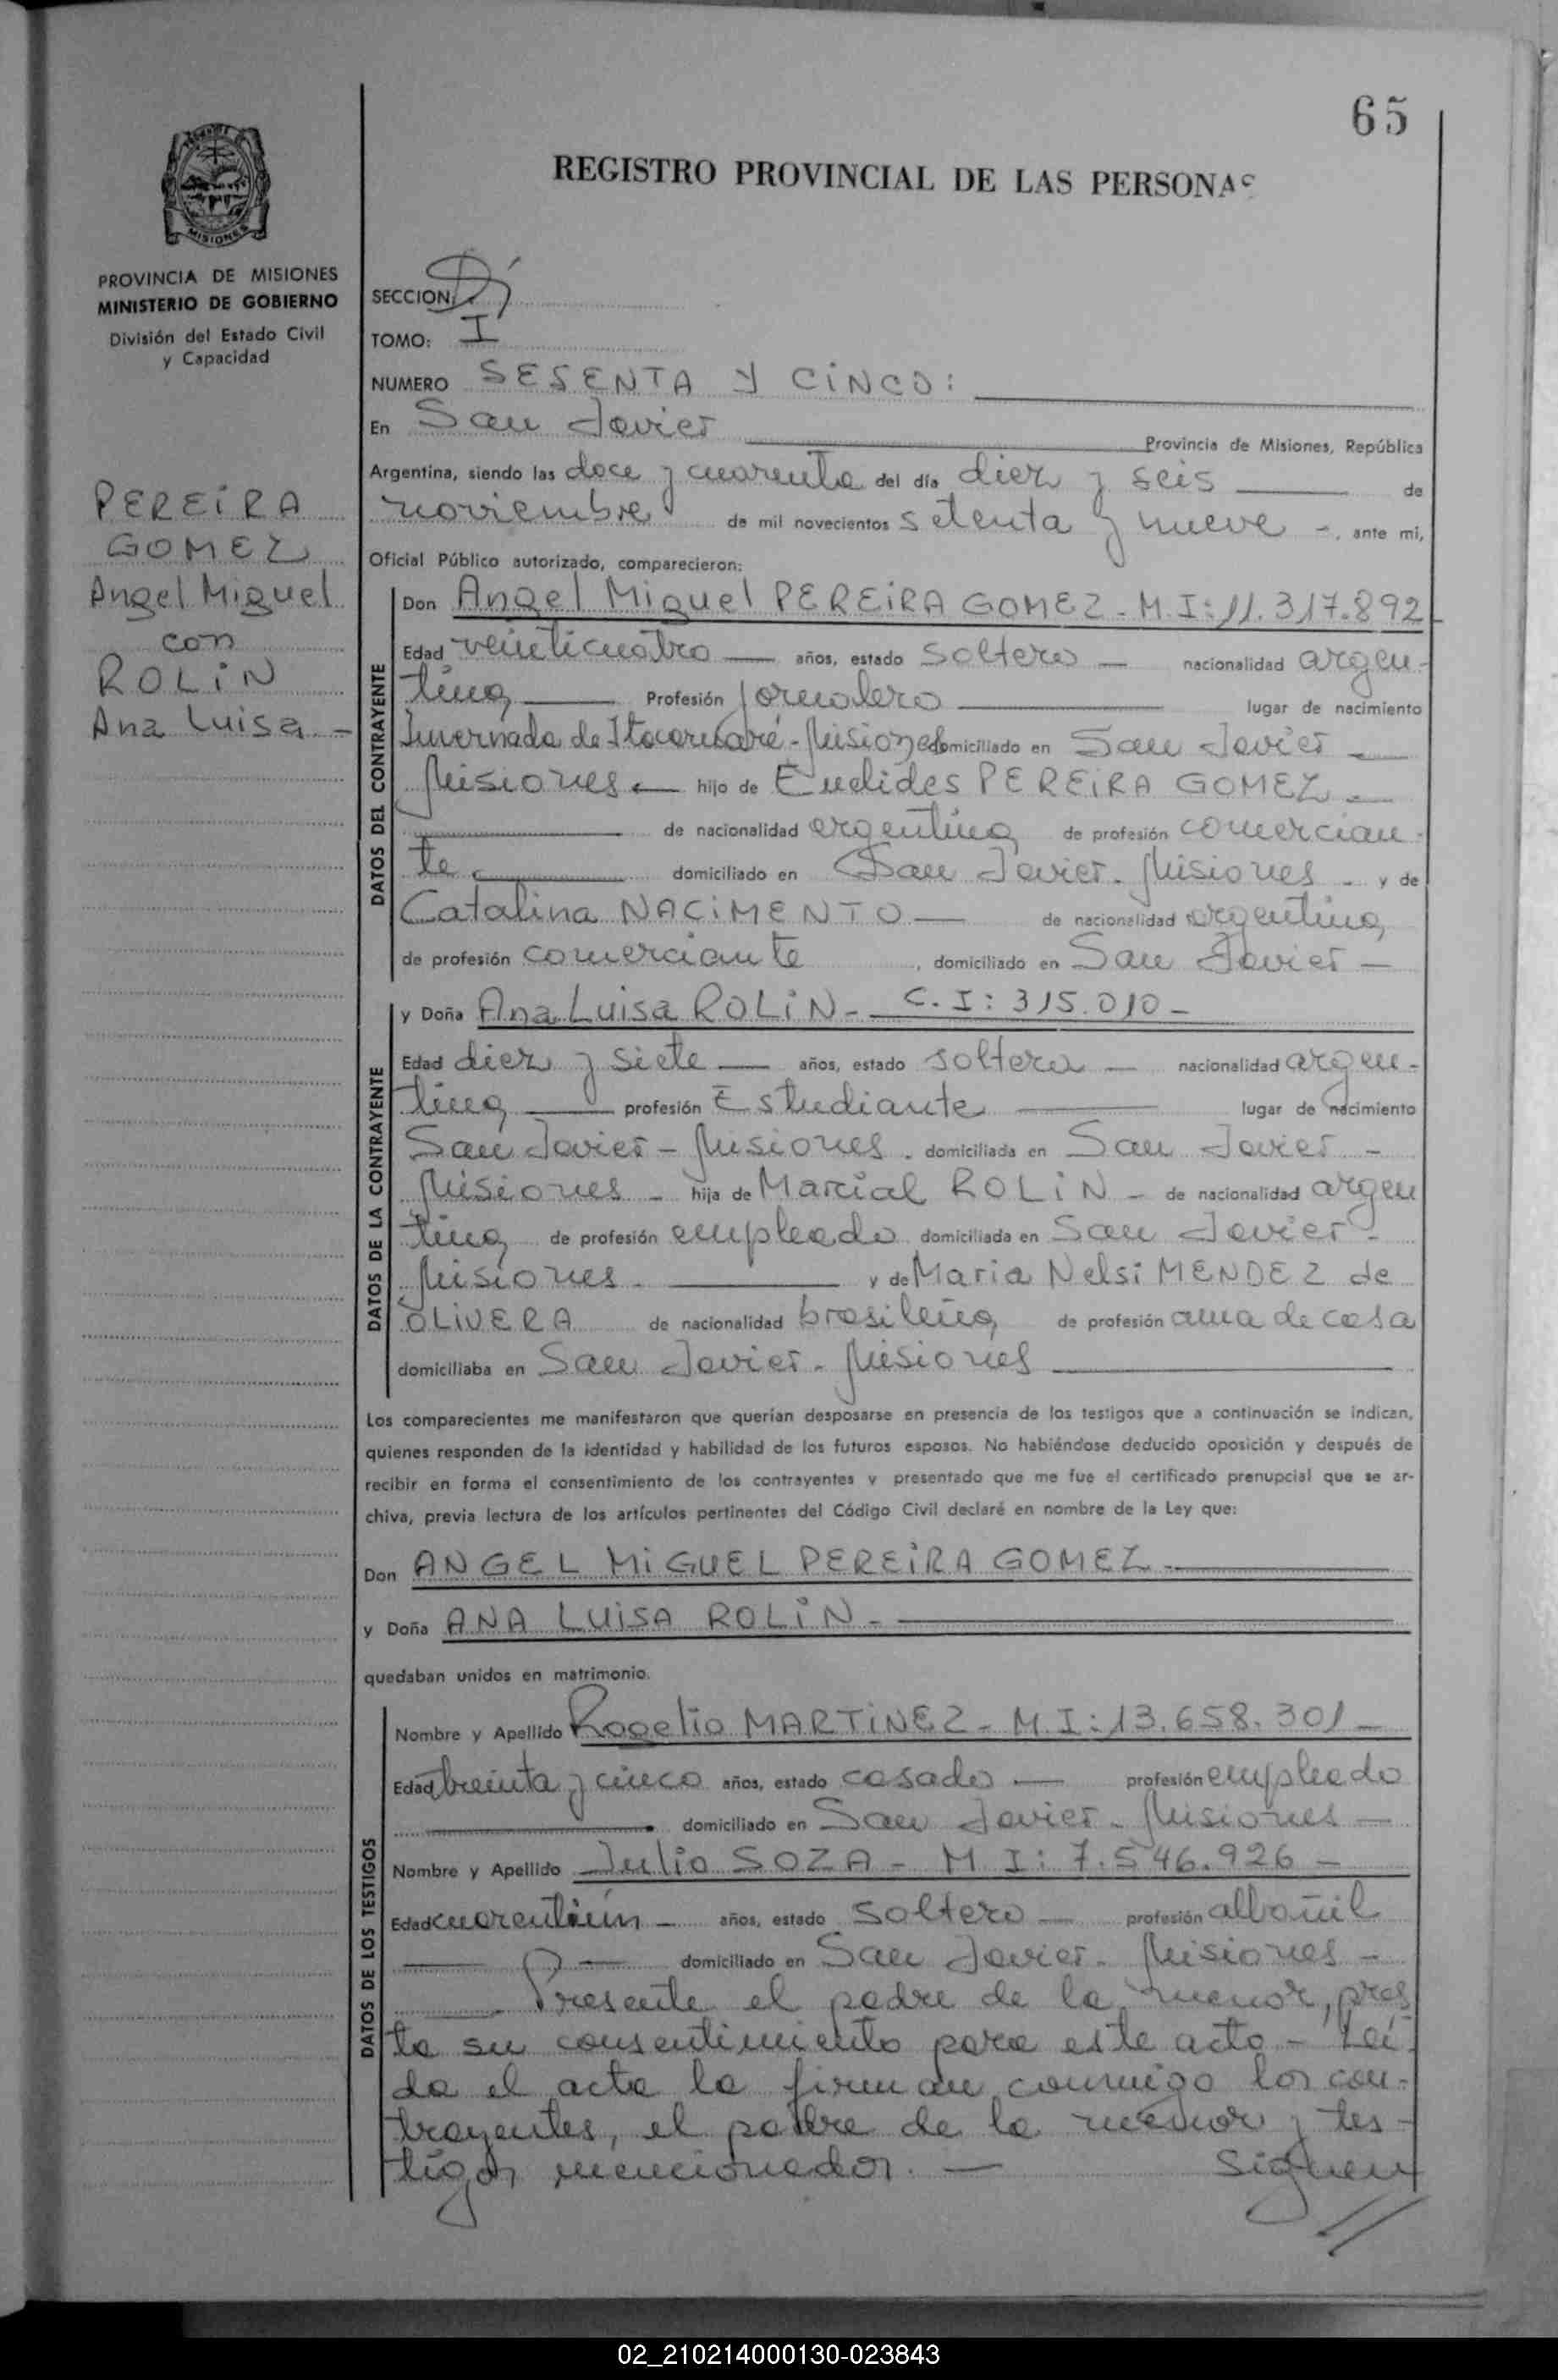 65
REGISTRO PROVINCIAL DE LAS PERSONAS
MISIONES
PROVINCIA DE MISIONES
MINISTERIO DE GOBIERNO
División del Estado Civil
y Capacidad
PEREIRA
GOMEZ
Angel Miguel
con
ROLIN
Ana Luisa -
SECCION:
TOMO: I
NUMERO SESENTA Y CINCO:
En San Javier Provincia de Misiones, República
Argentina, siendo las doce y cuarenta del día diez y seis de
noviembre de mil novecientos setenta y nueve -, ante mi,
Oficial Público autorizado, comparecieron:
DATOS DEL CONTRAYENTE
Don Angel Miguel PEREIRA GOMEZ - M.I: 11.317.892
Edad veinticuatro años, estado soltero - nacionalidad argen-
tina Profesión jornalero lugar de nacimiento
Invernada de Itacaruaré - Misiones domiciliado en San Javier -
Misiones - hijo de Euclides PEREIRA GOMEZ -
de nacionalidad argentina de profesión comercian-
te domiciliado en San Javier - Misiones - y de
Catalina NACIMENTO - de nacionalidad argentina,
de profesión comerciante, domiciliado en San Javier -
DATOS DE LA CONTRAYENTE
y Doña Ana Luisa ROLIN - C.I: 315.010 -
Edad diez y siete - años, estado soltera - nacionalidad argen-
tina profesión Estudiante lugar de nacimiento
San Javier - Misiones. domiciliada en San Javier -
Misiones - hija de Marcial ROLIN - de nacionalidad argen
tina, de profesión empleado domiciliada en San Javier -
Misiones. y de Maria Nelsi MENDEZ de
OLIVERA de nacionalidad brasileña, de profesión ama de casa
domiciliaba en San Javier - Misiones
Los comparecientes me manifestaron que querían desposarse en presencia de los testigos que a continuación se indican,
quienes responden de la identidad y habilidad de los futuros esposos. No habiéndose deducido oposición y después de
recibir en forma el consentimiento de los contrayentes y presentado que me fue el certificado prenupcial que se ar-
chiva, previa lectura de los artículos pertinentes del Código Civil declaré en nombre de la Ley que:
Don ANGEL MIGUEL PEREIRA GOMEZ -
y Doña ANA LUISA ROLIN -
quedaban unidos en matrimonio.
DATOS DE LOS TESTIGOS
Nombre y Apellido Rogelio MARTINEZ - M.I: 13.658.301 -
Edad treinta y cinco años, estado casado - profesión empleado
domiciliado en San Javier - Misiones -
Nombre y Apellido Julio SOZA - M I: 7.546.926 -
Edad cuarentiún - años, estado soltero - profesión albañil
domiciliado en San Javier - Misiones -
Presente el padre de la menor, pres
ta su consentimiento para este acto - Leí
da el acta la firman conmigo los con-
trayentes, el padre de la menor y tes-
tigos mencionados. - Siguen
//
02_210214000130-023843